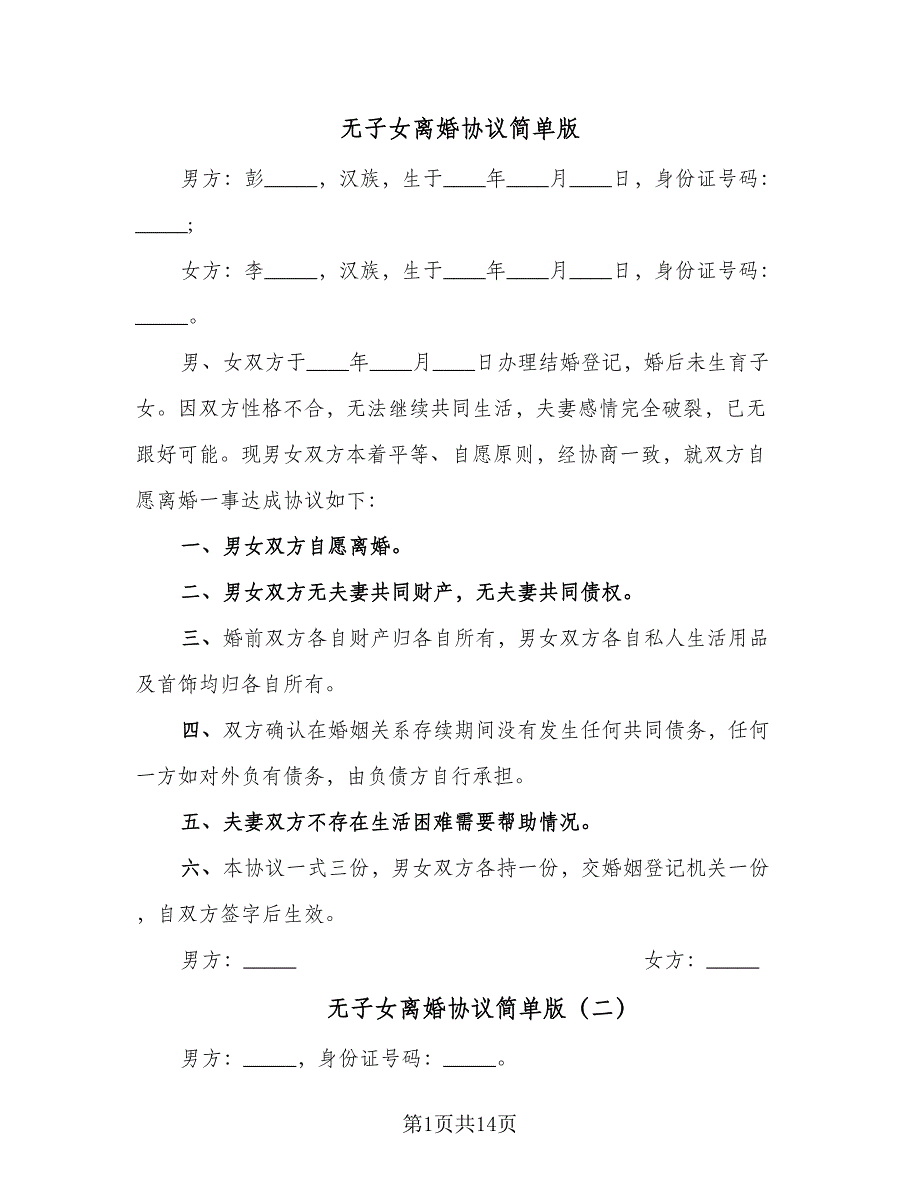 无子女离婚协议简单版
男方：彭_____，汉族，生于____年____月____日，身份证号码：
_____;
女方：李_____，汉族，生于____年____月____日，身份证号码：
_____。
男、女双方于____年____月____日办理结婚登记，婚后未生育子
女。因双方性格不合，无法继续共同生活，夫妻感情完全破裂，已无
跟好可能。现男女双方本着平等、自愿原则，经协商一致，就双方自
愿离婚一事达成协议如下：
一、男女双方自愿离婚。
二、男女双方无夫妻共同财产，无夫妻共同债权。
三、婚前双方各自财产归各自所有，男女双方各自私人生活用品
及首饰均归各自所有。
四、双方确认在婚姻关系存续期间没有发生任何共同债务，任何
一方如对外负有债务，由负债方自行承担。
五、夫妻双方不存在生活困难需要帮助情况。
六、本协议一式三份，男女双方各持一份，交婚姻登记机关一份
，自双方签字后生效。
男方：_____ 女方：_____
无子女离婚协议简单版（二）
男方：_____，身份证号码：_____。
第1页共14页